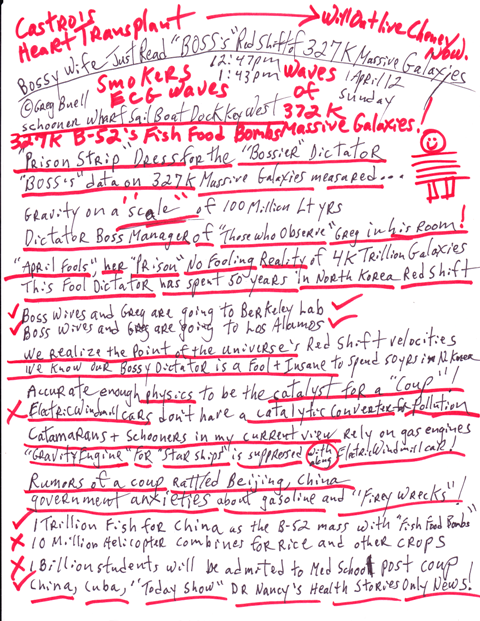 Castro's → Will Outlive Cheney
Heart Transplant Now.
Bossy Wife Just Read "BOSS's" Red Shift of 327K Massive Galaxies
Smokers 12:47pm Waves 1 April 12
ECG Waves 1:43pm of Sunday
© Greg Buell 372K
schooner Wharf Sail Boat Dock Key West
327K B-52's Fish Food Bombs Massive Galaxies!
"Prison Strip" Dress for the "Bossier" Dictator
"BOSS's" data on 327K Massive Galaxies measured...
Gravity on a "scale" of 100 Million Lt yrs
Dictator Boss Manager of "Those who Observe" Greg in his Room!
"April Fools", her "Prison" No Fooling Reality of 4K Trillion Galaxies
This Fool Dictator has spent 50 years in North Korea Red Shift
✓ Boss Wives and Greg are going to Berkeley Lab ✓
✓ Boss Wives and Greg are going to Los Alamos ✓
We realize the Point of the universe's Red Shift velocities
We know our Bossy Dictator is a Fool + Insane to spend 50 yrs in N. Korea
Accurate enough physics to be the catalyst for a "Coup"!
X ElatricWindmillcars don't have a catalytic converter for Pollution
Catamarans + Schooners in my current view rely on gas engines
"Gravity Engine" for "Star ships" is suppressed with along ElatricWindmillcar!
Rumors of a coup rattled Beijing, China
government anxieties about gasoline and "Firey Wrecks"!
✓ 1 Trillion Fish for China as the B-52 mass with "Fish Food Bombs"
X 10 Million Helicopter Combines for Rice and other crops
X 1 Billion students will be admited to Med School post coup!
✓ China, Cuba, "Today Show" DR Nancy's Health Stories Only News!